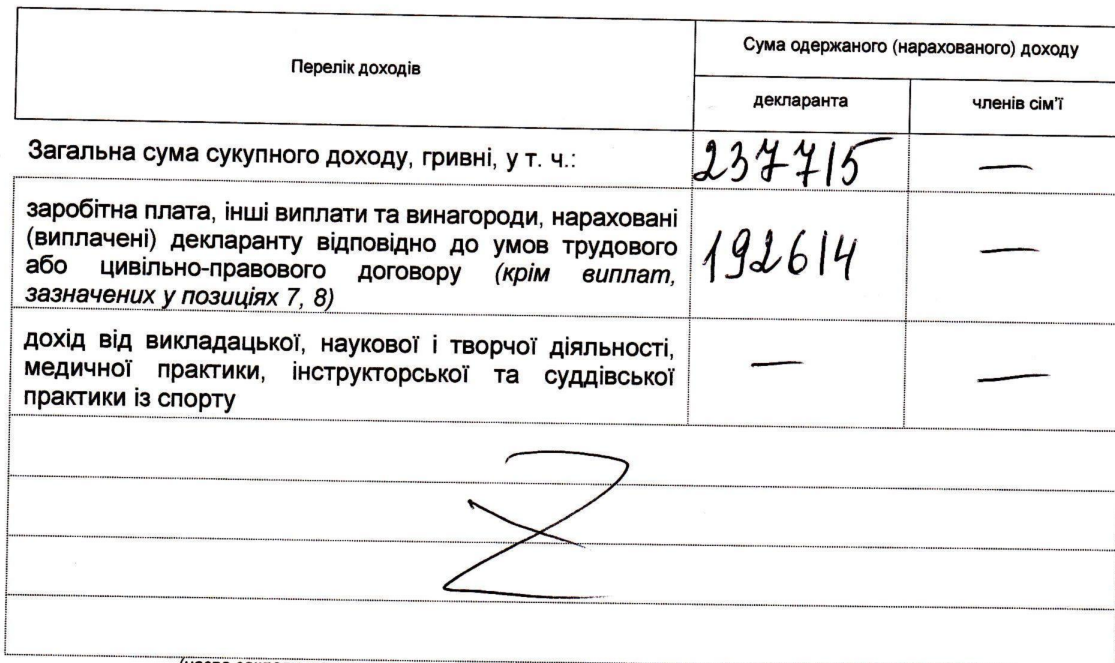 Перелік доходів
Сума одержаного (нарахованого) доходу
декларанта
членів сім'ї
Загальна сума сукупного доходу, гривні, у т. ч.:
237715
—
заробітна плата, інші виплати та винагороди, нараховані
(виплачені) декларанту відповідно до умов трудового
або цивільно-правового договору (крім виплат,
зазначених у позиціях 7, 8)
192614
—
дохід від викладацької, наукової і творчої діяльності,
медичної практики, інструкторської та суддівської
практики із спорту
—
—
Z